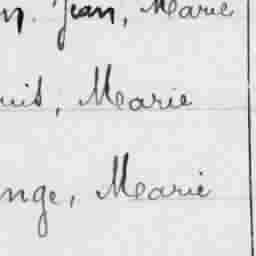 Jean, Marie
, Marie
nge, Marie